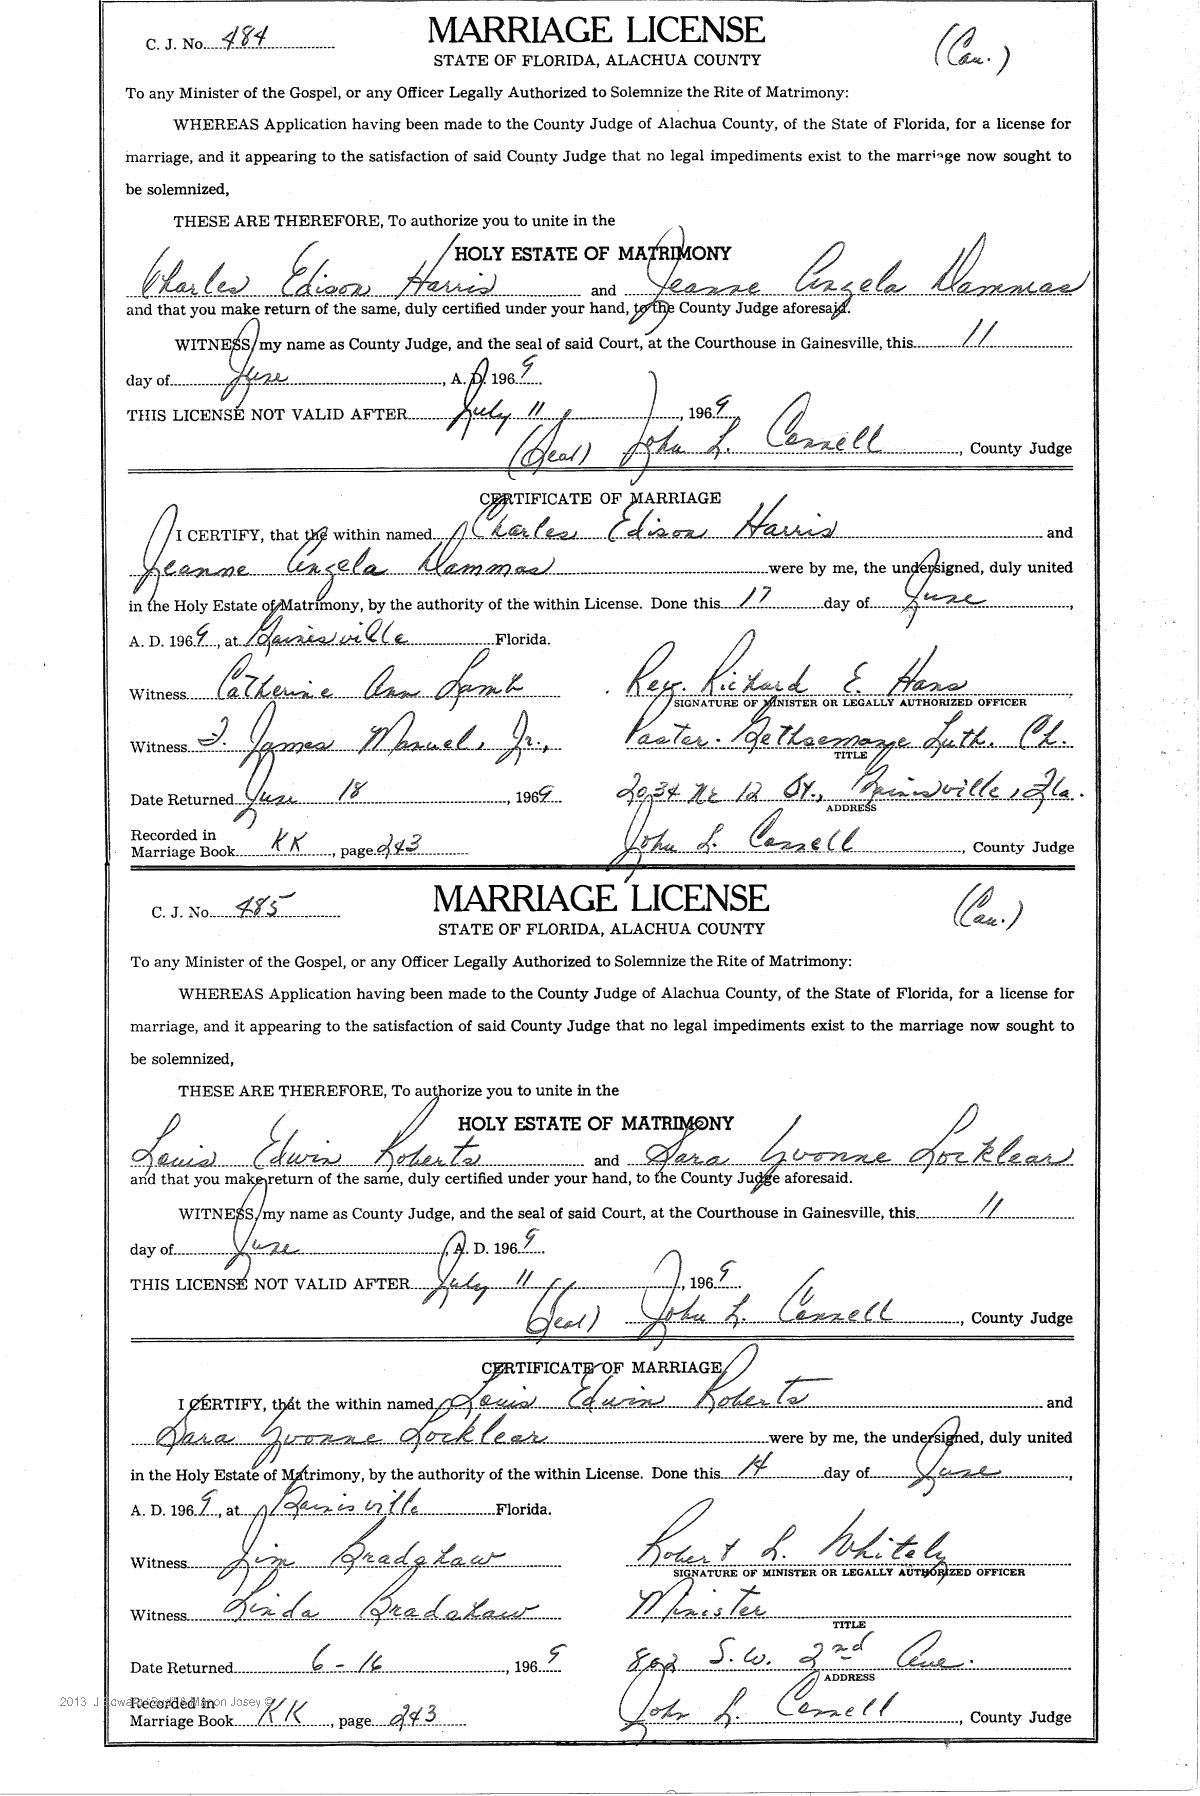 C. J. No. 484
MARRIAGE LICENSE
(Cau.)
STATE OF FLORIDA, ALACHUA COUNTY
To any Minister of the Gospel, or any Officer Legally Authorized to Solemnize the Rite of Matrimony:
WHEREAS Application having been made to the County Judge of Alachua County, of the State of Florida, for a license for
marriage, and it appearing to the satisfaction of said County Judge that no legal impediments exist to the marriage now sought to
be solemnized,
THESE ARE THEREFORE, To authorize you to unite in the
HOLY ESTATE OF MATRIMONY
Charles Edison Harris and Jeanne Angela Dammas
and that you make return of the same, duly certified under your hand, to the County Judge aforesaid.
WITNESS, my name as County Judge, and the seal of said Court, at the Courthouse in Gainesville, this 11
day of June, A. D. 1969.
THIS LICENSE NOT VALID AFTER July 11, 1969
(Seal) John L. Connell, County Judge
CERTIFICATE OF MARRIAGE
I CERTIFY, that the within named Charles Edison Harris and
Jeanne Angela Dammas were by me, the undersigned, duly united
in the Holy Estate of Matrimony, by the authority of the within License. Done this 17 day of June,
A. D. 1969, at Gainesville Florida.
Witness Catherine Ann Lamb
Rev. Richard E. Hans
SIGNATURE OF MINISTER OR LEGALLY AUTHORIZED OFFICER
Witness F. James Manuel, Jr.,
Pastor - Gethsemane Luth. Ch.
TITLE
Date Returned June 18, 1969
2034 NE 12 St., Gainesville, Fla.
ADDRESS
Recorded in
Marriage Book KK, page 243
John L. Connell, County Judge
C. J. No. 485
MARRIAGE LICENSE
(Cau.)
STATE OF FLORIDA, ALACHUA COUNTY
To any Minister of the Gospel, or any Officer Legally Authorized to Solemnize the Rite of Matrimony:
WHEREAS Application having been made to the County Judge of Alachua County, of the State of Florida, for a license for
marriage, and it appearing to the satisfaction of said County Judge that no legal impediments exist to the marriage now sought to
be solemnized,
THESE ARE THEREFORE, To authorize you to unite in the
HOLY ESTATE OF MATRIMONY
Louis Edwin Roberts and Sara Yvonne Locklear
and that you make return of the same, duly certified under your hand, to the County Judge aforesaid.
WITNESS, my name as County Judge, and the seal of said Court, at the Courthouse in Gainesville, this 11
day of June, A. D. 1969.
THIS LICENSE NOT VALID AFTER July 11, 1969
(Seal) John L. Connell, County Judge
CERTIFICATE OF MARRIAGE
I CERTIFY, that the within named Louis Edwin Roberts and
Sara Yvonne Locklear were by me, the undersigned, duly united
in the Holy Estate of Matrimony, by the authority of the within License. Done this 14 day of June,
A. D. 1969, at Gainesville Florida.
Witness Jim Bradshaw
Robert L. Whitely
SIGNATURE OF MINISTER OR LEGALLY AUTHORIZED OFFICER
Witness Linda Bradshaw
Minister
TITLE
Date Returned 6-16, 1969
802 S.W. 2nd Ave.
ADDRESS
2013 J Josey ©
Recorded in
Marriage Book KK, page 243
John L. Connell, County Judge